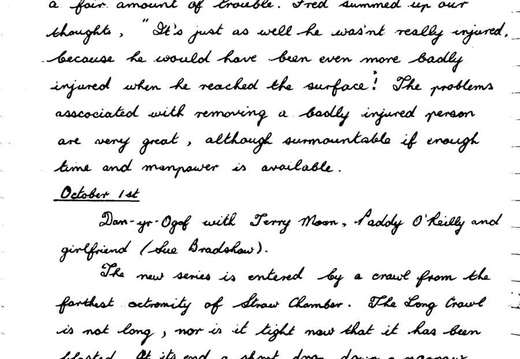 a fair amount of trouble. Fred summed up our
thoughts, "It's just as well he wasn't really injured,
because he would have been even more badly
injured when he reached the surface"! The problems
asscociated with removing a badly injured person
are very great, although surmountable if enough
time and manpower is available.
October 1st
Dan-yr-Ogof with Terry Moon, Paddy O'Reilly and
girlfriend (Sue Bradshaw).
The new series is entered by a crawl from the
farthest extremity of Straw Chamber. The Long Crawl
is not long, nor is it tight now that it has been
blasted. At its end a short drop down a narrow